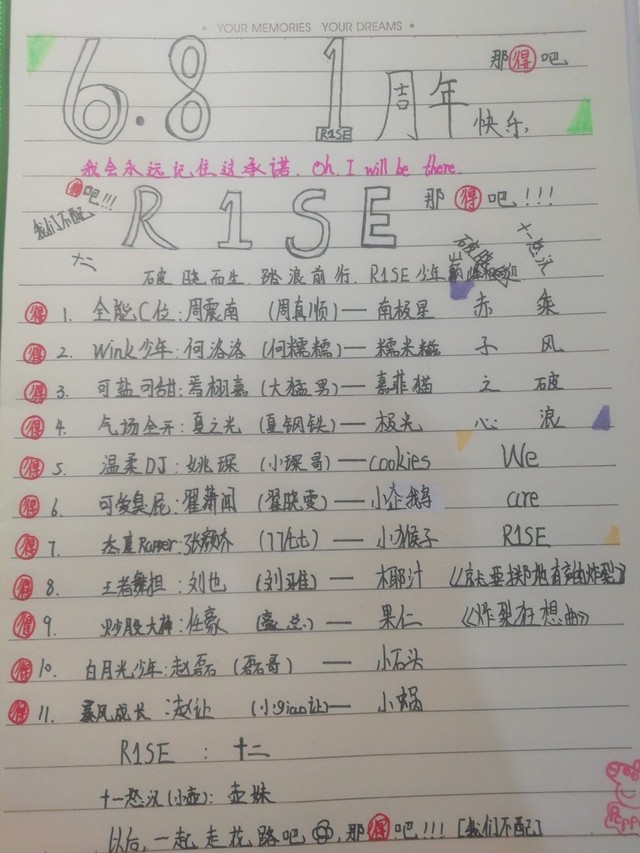 YOUR MEMORIES YOUR DREAMS
6.8 1周年快乐,
R1SE
那得吧
我会永远记住这承诺. Oh, I will be there.
吧!!!
我们不配
R1SE
那得吧!!!
十二
十一怒汉
破晓而生.踏浪前行.R1SE少年
得 1. 全能C位:周震南 (周真顺)— 南极星 赤 乘
得 2. Wink少年:何洛洛 (何糯糯)— 糯米糍 子 风
得 3. 可盐可甜:焉栩嘉 (大猛男)— 嘉菲猫 之 破
得 4. 气场全开:夏之光 (夏钢铁)— 极光 心 浪
得 5. 温柔DJ:姚琛 (小琛哥)— cookies We
得 6. 可爱臭屁:翟潇闻 (翟晓雯)— 小企鹅 are
得 7. Rapper:张颜齐 — 小猴子 R1SE
得 8. 王者舞担:刘也 (刘难)— 椰汁
得 9. 炒股大神:任豪 (豪总)— 果仁 《炸裂狂想曲》
得 10. 白月光少年:赵磊 (磊哥) — 小石头
得 11. 暴风成长:赵让 (小giao让)— 小蜗
R1SE : 十二
十一怒汉(小壶): 壶妹
以后,一起走花路吧,那得吧!!! [我们不配]
Peppa